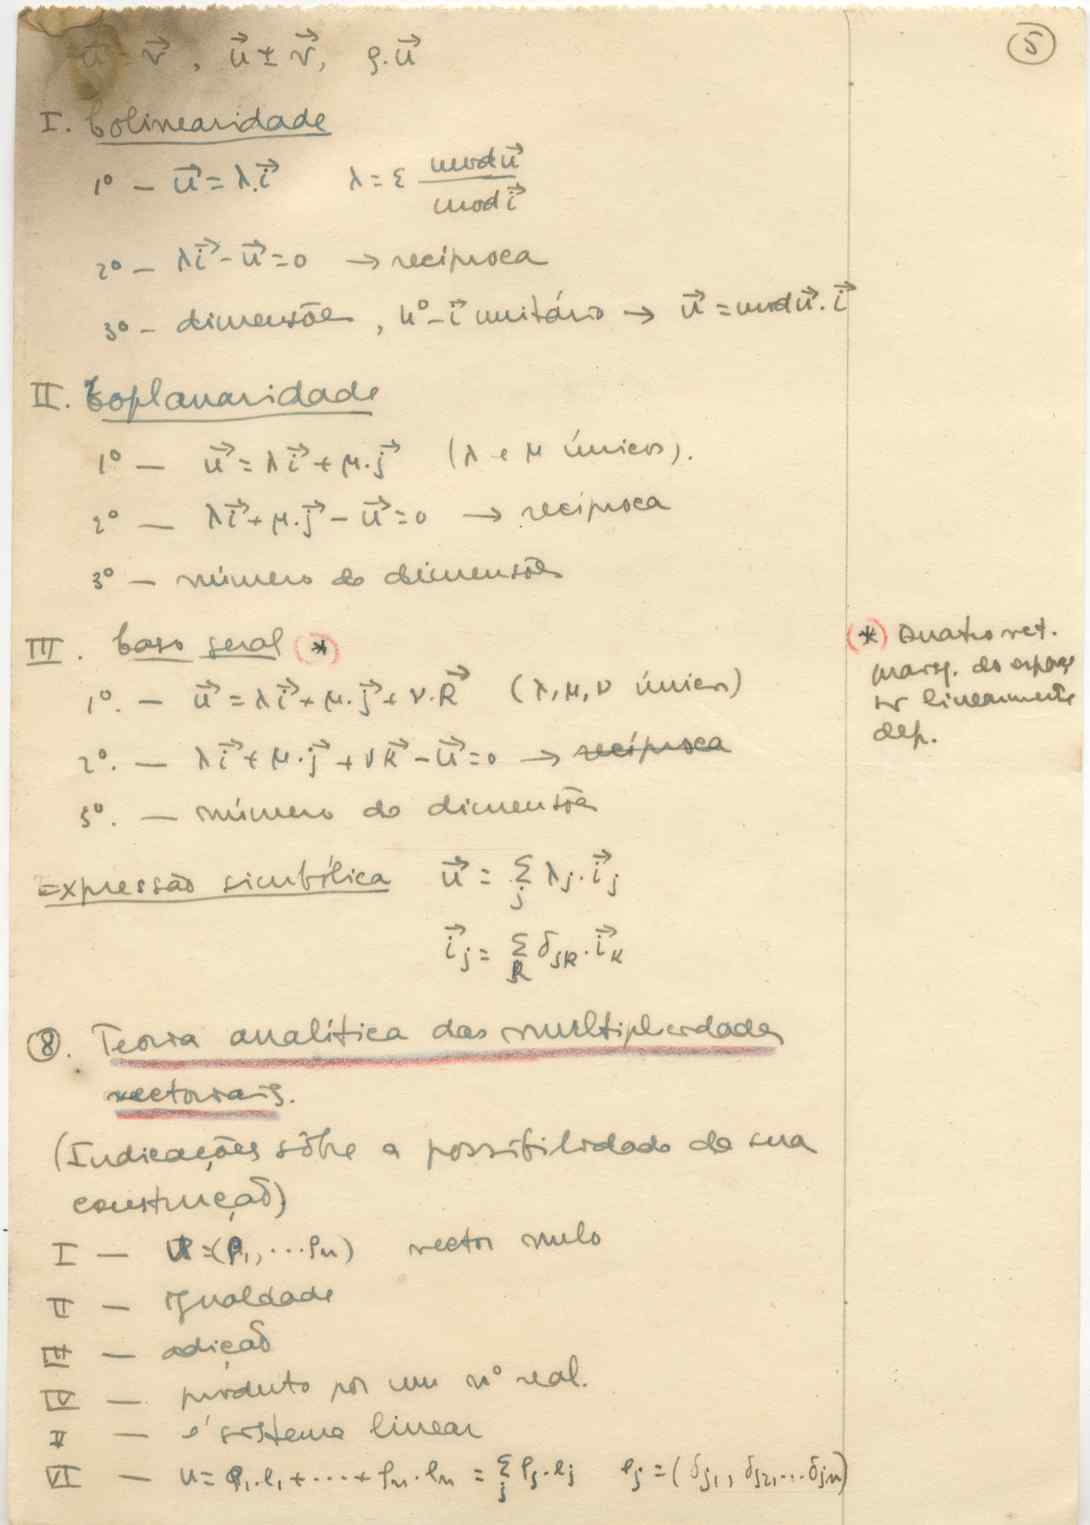 5
u⃗ = v⃗ , u⃗ ± v⃗, ρ.u⃗
I. Colinearidade
1º — u⃗ = λ.i⃗ λ = ε mod u⃗ / mod i⃗
2º — λi⃗ - u⃗ = 0 → recíproca
3º - dimensões, 4º - i⃗ unitário → u⃗ = mod u⃗ . i⃗
II. Coplanaridade
1º — u⃗ = λi⃗ + μ.j⃗ (λ e μ únicos).
2º — λi⃗ + μ.j⃗ - u⃗ = 0 → recíproca
3º — número de dimensões
III. Caso geral (*)
1º. — u⃗ = λi⃗ + μ.j⃗ + ν.k⃗ (λ, μ, ν únicos)
2º. — λi⃗ + μ.j⃗ + νk⃗ - u⃗ = 0 → recíproca
3º. — número de dimensões
(*) Quatro vet.
do espaço
linearmente
dep.
Expressão simbólica u⃗ = Σ_j λj.i⃗j
i⃗j = Σ_k δjk.i⃗k
8. Teoria analítica das multiplicidades
vectoriais.
(Indicações sôbre a possibilidade de sua
construção)
I — U = (ρ1, ... ρn) vector nulo
II — Igualdade
III — adição
IV — produto por um nº real.
V — é sistema linear
VI — u = ρ1.e1 + ... + ρn.en = Σ_j ρj.ej ej = (δj1, δj2, ... δjn)